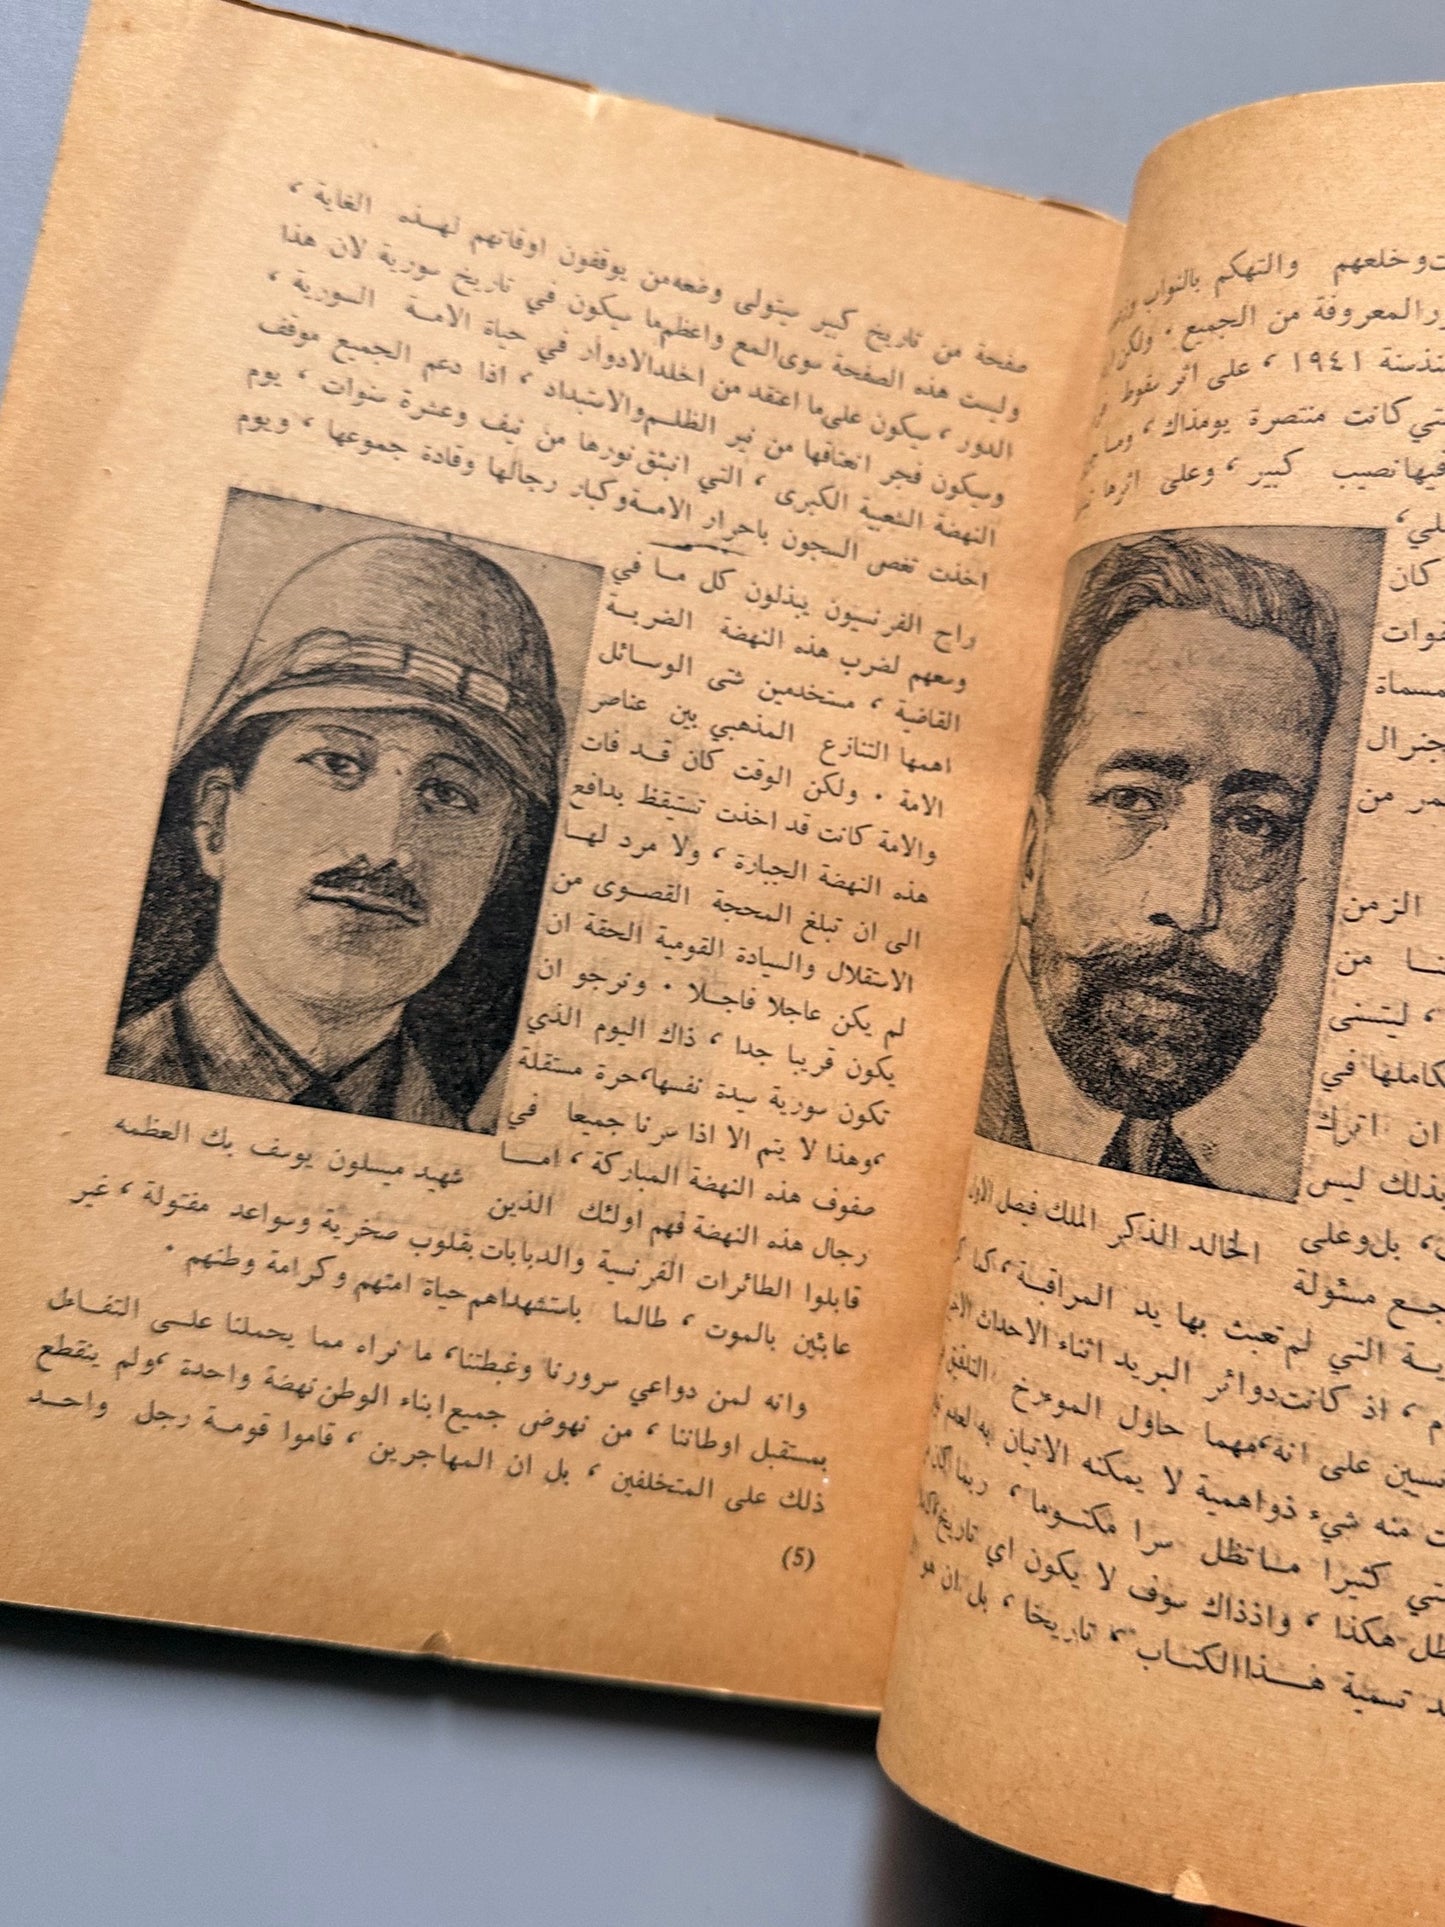 صفحة من تاريخ كبير سيتولى وضعه من يوقفون اوقاتهم لهـذه الغاية ،
وليست هذه الصفحة سوى المع واعظم ما سيكون في تاريخ سورية لان هذا
الدور ، سيكون على ما اعتقد من اخلد الادوار في حياة الامـة السورية ،
وسيكون فجر انعتاقها من نير الظلم والاستبداد ، اذا دعم الجميع موقف
النهضة الشعبية الكبرى ، التي انبثق نورها من نيف وعشرة سنوات ، يوم
اخذت تغص السجون باحرار الامة وكبار رجالها وقادة جموعها ، ويوم
راح الفرنسيون يبذلون كل مـا في
وسعهم لضرب هذه النهضة الضريـة
القاضية ، مستخدمين شتى الوسـائل
اهمها التنازع المذهبي بين عناصر
الامة . ولكن الوقت كان قـد فات
والامة كانت قد اخذت تستيقظ بدافع
هذه النهضة الجبارة ، ولا مرد لهـا
الى ان تبلغ المحجة القصـوى من
الاستقلال والسيادة القومية الحقة ان
لم يكن عاجلا فاجـلا . ونرجو ان
يكون قريبا جدا ، ذاك اليوم الذي
تكون سورية سيدة نفسها، حرة مستقلة
،وهذا لا يتم الا اذا سرنا جميعا في
صفوف هذه النهضة المباركة ، امـا
رجال هذه النهضة فهم اولئك الذين
شهيد ميسلون يوسف بك العظمه
قابلوا الطائرات الفرنسية والدبابات بقلوب صخرية وسواعد مفتولة ، غير
عابئين بالموت ، طالما باستشهادهم حياة امتهم وكرامة وطنهم .
وانه لمن دواعي سرورنا وغبطتنا، ما نراه مما يحملنا علـى التفـاءل
بمستقبل اوطاننا ، من نهوض جميع ابناء الوطن نهضة واحدة ،ولم ينقطع
ذلك على المتخلفين ، بل ان المهاجرين ، قاموا قومـة رجل واحـد
(5)
وخلعهم والتهكم بالنواب
المعروفة من الجميع . ولكن
سنة ١٩٤١ ، على اثر سقوط
كانت منتصرة يومذاك ،
فيها نصيب كبير ، وعلى اثرها
كان
جنرال
من
الزمن
من
، ليتسنى
في
ان اترك
ليس
، بل وعلى
مسئولة
الخالد الذكر الملك فيصل الاول
التي لم تعبث بها يد المراقبـة ، كما
، اذ كانت دوائر البريد اثناء الاحداث
على انه ،مهما حاول الموءرخ
منه شيء ذو اهمية لا يمكنه الاتيان به
كثيرا مـا تظل سرا مكتـوما ، ربما
هكذا ، واذذاك سوف لا يكون اي تاريخ
تسمية هـذا الكتـاب " تاريخا ، بل ان هو